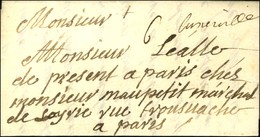 Monsieur
6 Luneville
Monsieur Lealle
de present a paris chez
monsieur maupetit marchand
de soyrie rue trousuache
a paris